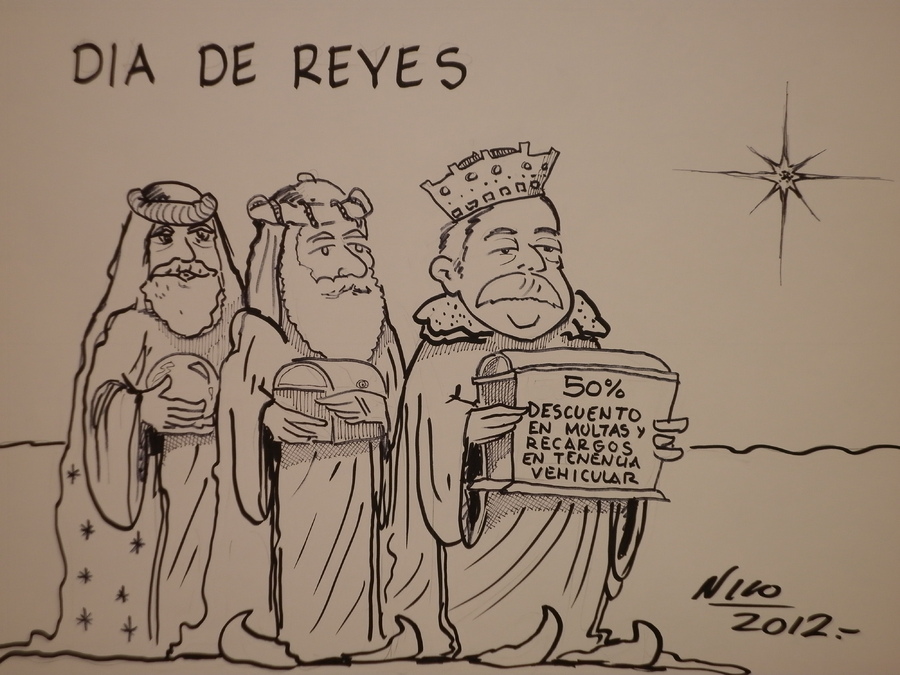 DIA DE REYES
50%
DESCUENTO
EN MULTAS Y
RECARGOS
EN TENENCIA
VEHICULAR
NICO
2012.-